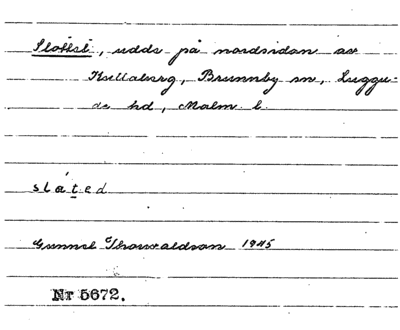 udde på nordsidan av
Kullaberg, Brunnby sn, Luggu-
de hd, Malm. l.
Gunnel Thorvaldson 1945
Nr 5672.